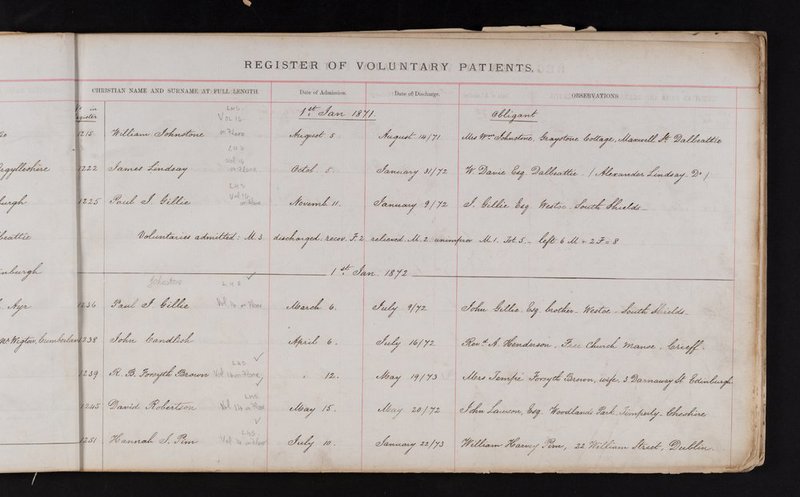 REGISTER OF VOLUNTARY PATIENTS.
CHRISTIAN NAME AND SURNAME AT FULL LENGTH. Date of Admission. Date of Discharge. OBSERVATIONS
No in Register
LHS. Vol 16 1st Jan 1871. Obligant
1215 William Johnstone August 5 August 14/71 Mrs Wm Johnstone, Graystone Cottage, Maxwell St Dalbeattie
LHS
Argyllshire 1222 James Lindsay Octob. 5 January 31/72 W. Davie Esq Dalbeattie / Alexander Lindsay Do /
LHS
1225 Paul J. Gillie Novemb 11. January 9/72 J. Gillie Esq Westoe South Shields
Voluntaries admitted: M. 3 discharged: recov. F. 2 relieved. M. 2 unimprov M. 1. Tot. 5 left 6 M = 2 F = 8
1st Jan. 1872
LHS
Ayr 1236 Paul J. Gillie March 6. July 9/72 John Gillie Esq brother Westoe South Shields
Wigton, Cumberland 1238 John Candlish April 6. July 16/72 Revd A. Henderson, Free Church Manse, Crieff.
LHS
1239 R. B. Forsyth Brown " 12. May 19/73 Mrs Forsyth Brown, wife, 3 Darnaway St Edinburgh
LHS
1245 David Robertson May 15. May 20/72 John Lawson Esq Woodlands Park Cheshire
LHS.
1251 Hannah S. Pim July 10. January 22/73 William Harvey Pim, 22 William Street, Dublin